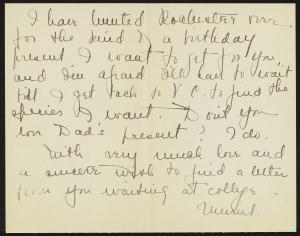 I have hunted Rochester over
for the kind of a birthday
present I want to get for you,
and I'm afraid I'll have to wait
till I get back to V.C. to find the
species I want. Don't you
love Dad's present? I do.
With very much love and
a sincere wish to find a letter
from you waiting at college